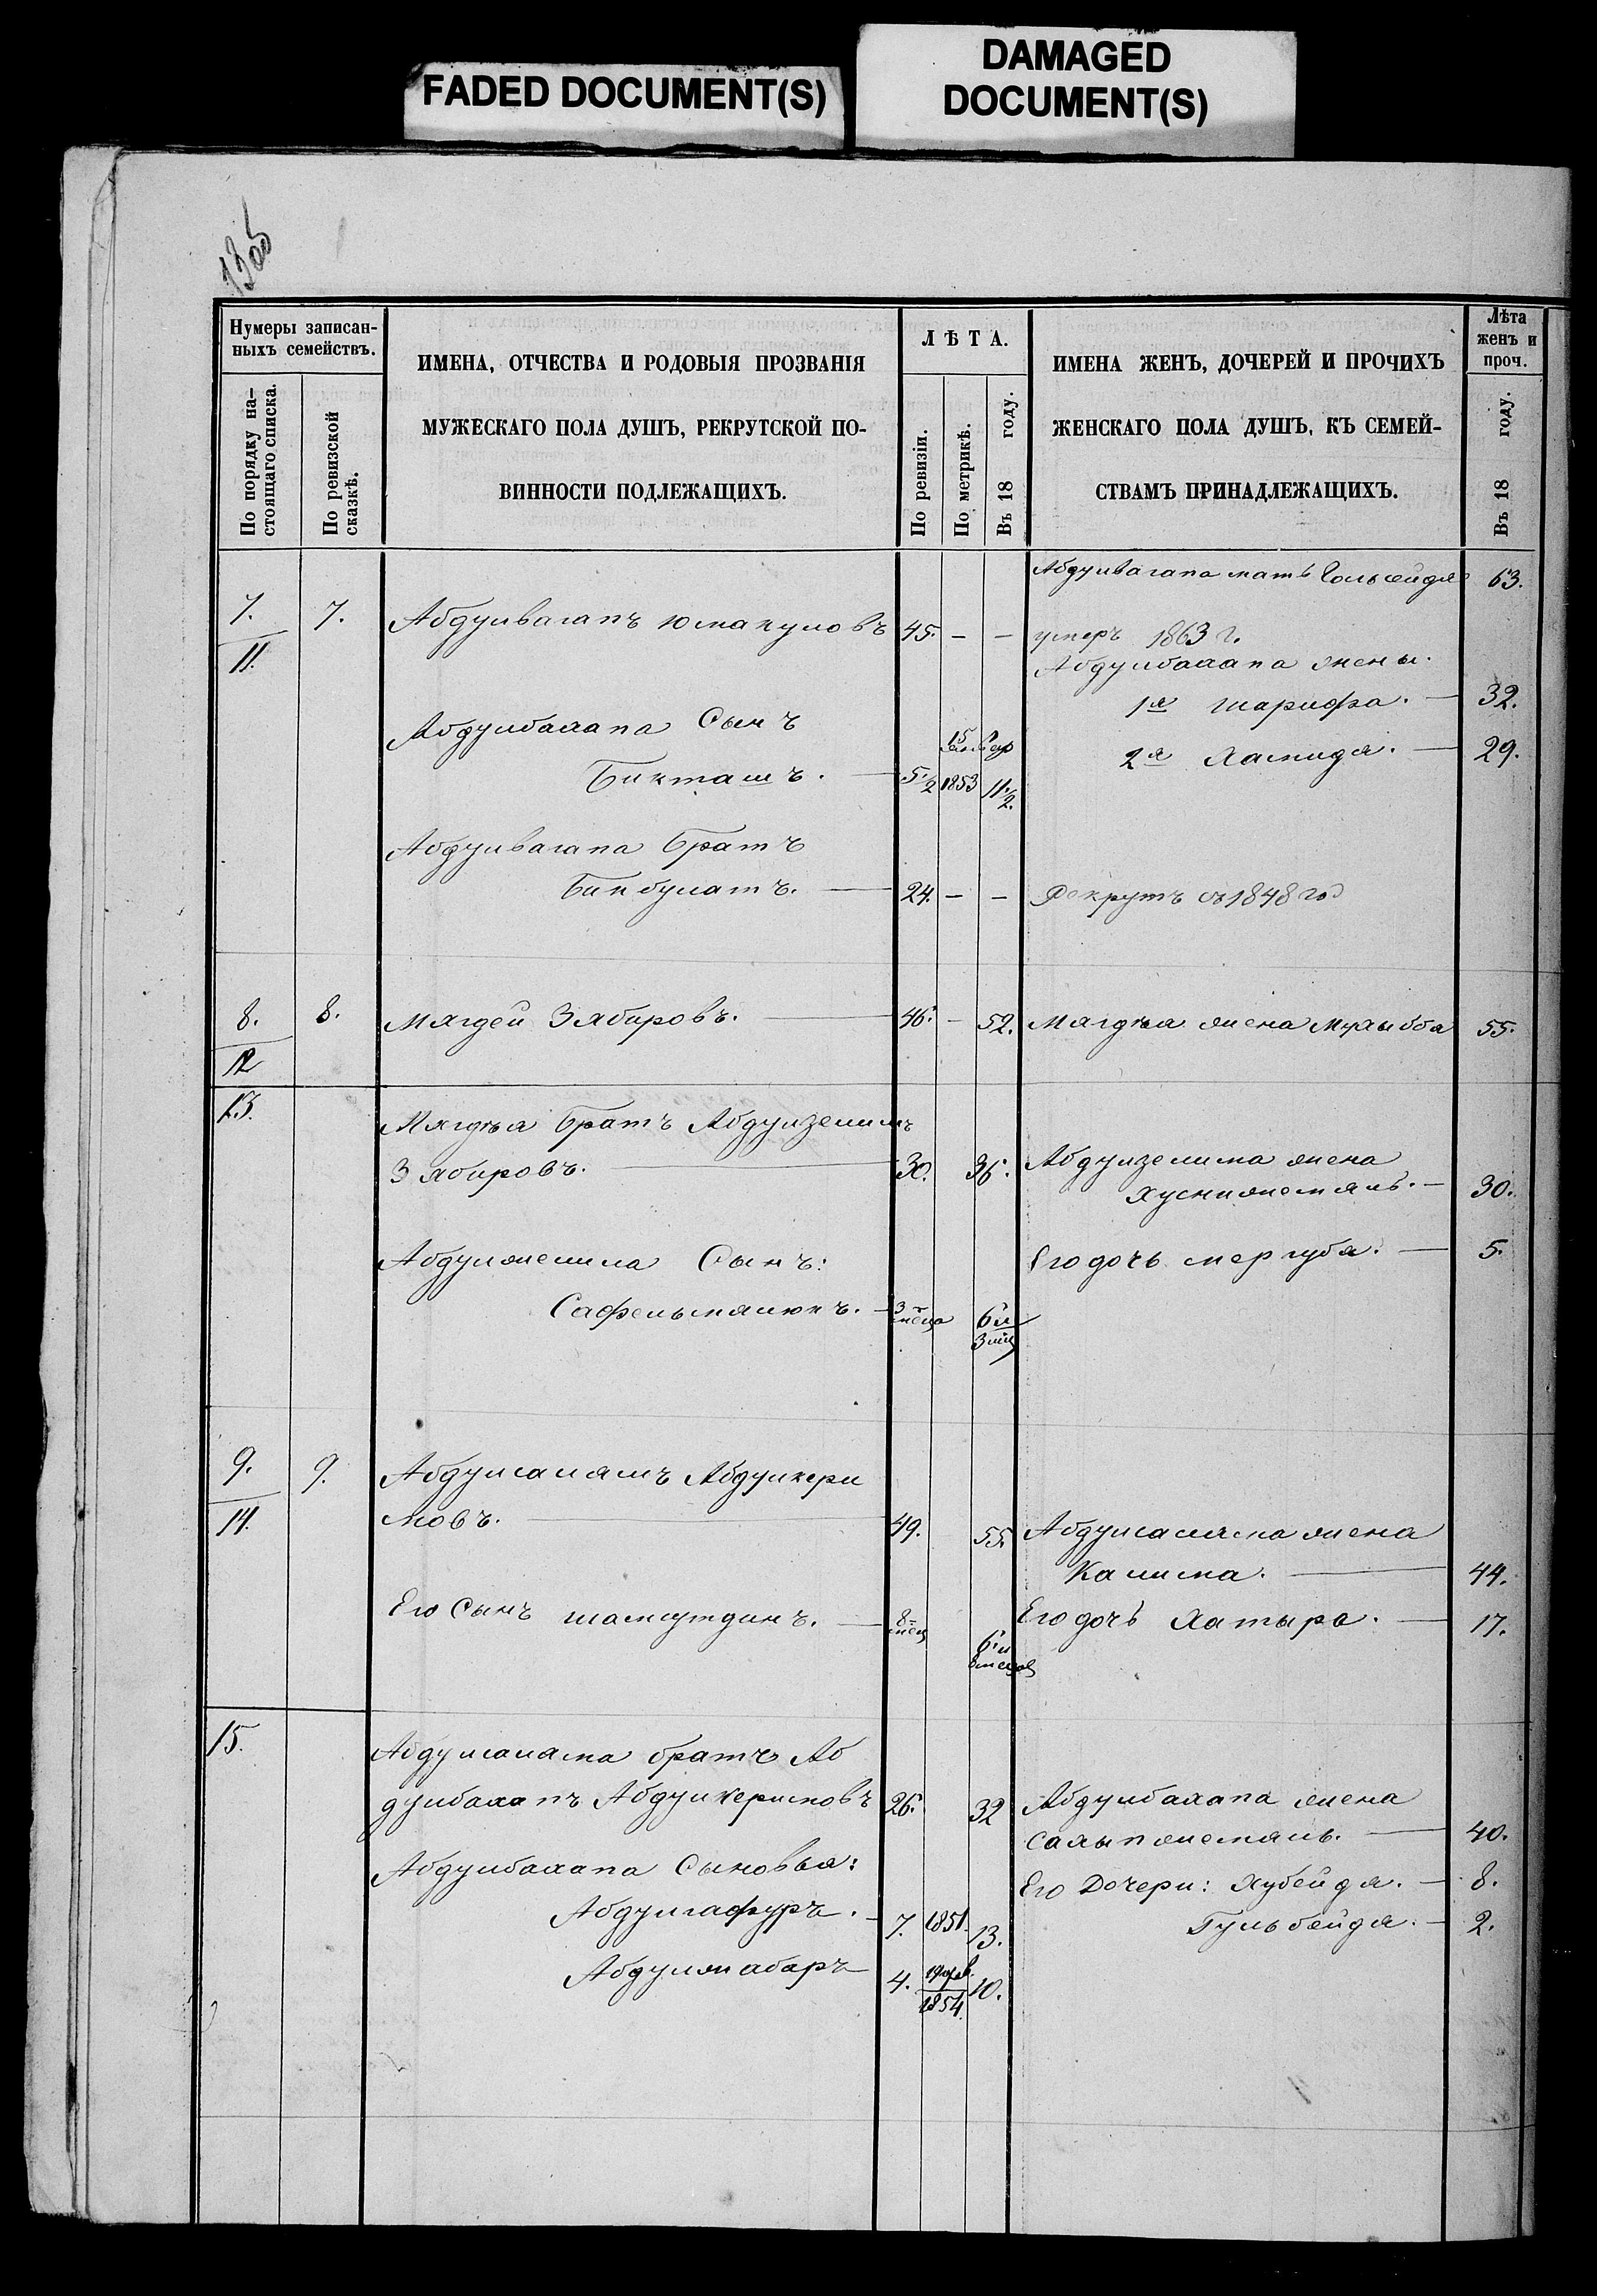 FADED DOCUMENT(S)
DAMAGED
DOCUMENT(S)
Нумеры записан-
ныхъ семействъ.
По порядку на-
стоящаго списка.
По ревизской
сказкѣ.
ИМЕНА, ОТЧЕСТВА И РОДОВЫЯ ПРОЗВАНІЯ
МУЖЕСКАГО ПОЛА ДУШЪ, РЕКРУТСКОЙ ПО-
ВИННОСТИ ПОДЛЕЖАЩИХЪ.
ЛѢТА.
По ревизіи.
По метрикѣ.
Въ 18 году.
ИМЕНА ЖЕНЪ, ДОЧЕРЕЙ И ПРОЧИХЪ
ЖЕНСКАГО ПОЛА ДУШЪ, КЪ СЕМЕЙ-
СТВАМЪ ПРИНАДЛЕЖАЩИХЪ.
Лѣта
женъ и
проч.
Въ 18 году.
Абдулвагапа мать 63.
7. 7. Абдулвагапъ Юмакуловъ 45. — — умеръ 1863 г.
11.
Абдулвагапа жены.
1я Шарифа. — 32.
Абдулвагапа Сынъ
2я Хамида. — 29.
Бикташъ. — 5 1/2 15 1853 11 1/2.
Абдулвагапа братъ
Бикбулатъ. — 24. — — Рекрутъ съ 1848 год
8. 8. Мягдей Зябировъ. — 46. — 52. Мягдѣя жена 55.
12
13. Мягдѣя братъ Абдулзелилъ
Зябировъ. — 30. 36. Абдулзелила жена
Хуснижемяль. — 30.
Абдулжелила Сынъ: Его дочь Мергубя. — 5.
3 меца 6 и 3 мец
9. 9. Абдулсалямъ Абдулкери
14. мовъ. — 49. 55. Абдулсаляма жена
Калима. — 44.
Его Сынъ Шамсутдинъ. — 8 мец 6 и 8 мецов Его дочь Хатыра. — 17.
15. Абдулсаляма братъ Аб
дулвахапъ Абдулкеримовъ 26. 32 Абдулвахапа жена
Сахыпжемяль. — 40.
Абдулвахапа Сыновья:
Его Дочери: Хубейдя. — 8.
Абдулгафуръ. — 7. 1851. 13.
Гульбейдя. — 2.
Абдулжабаръ 4. 1854. 10.